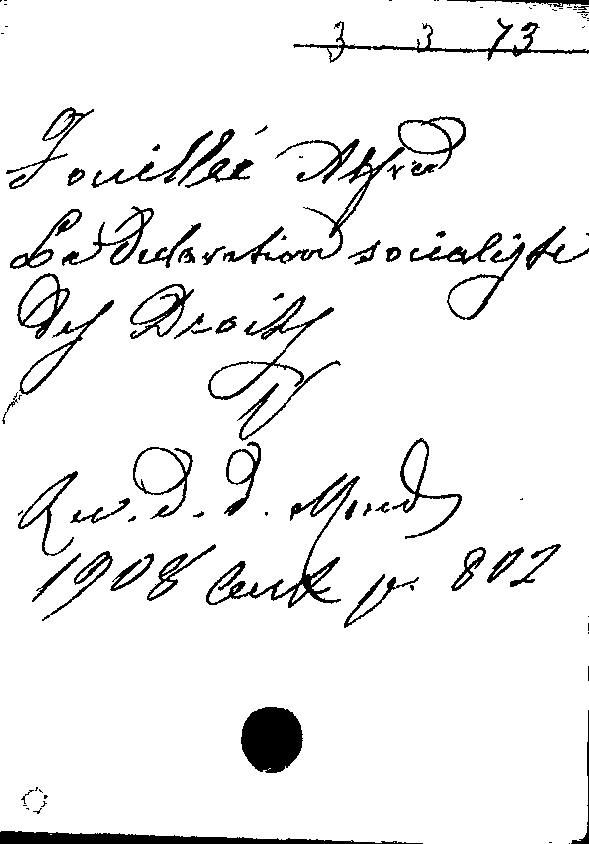 3 3 73
Fouillée Alfred
La Declaration socialiste
des Droits
Rev. d. d. Mond
1908 p. 802